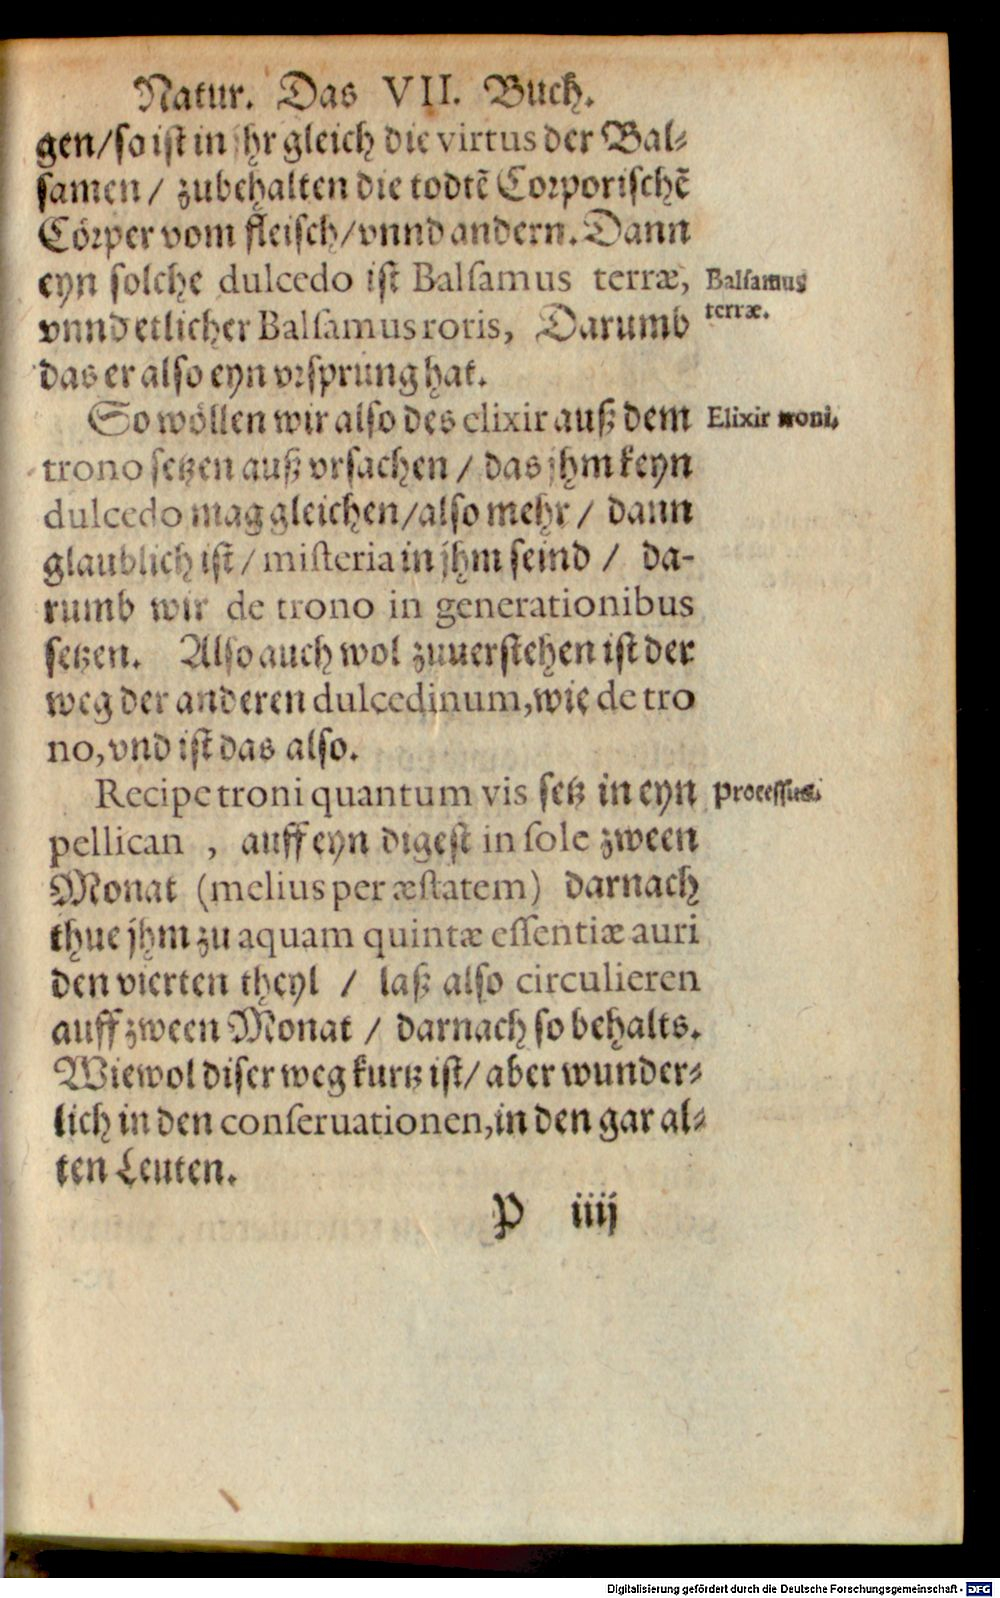 Natur. Das VII. Buch.
gen/so ist in jhr gleich die virtus der Bal⸗
samen / zubehalten die todtẽ Corporischẽ
Cörper vom fleisch/vnnd andern. Dann
eyn solche dulcedo ist Balſamus terræ,
Balſamus
terræ.
vnnd etlicher Balſamus roris, Darumb
das er also eyn vrsprung hat.
So wöllen wir also des elixir auß dem
Elixir troni.
trono setzen auß vrsachen / das jhm keyn
dulcedo mag gleichen/also mehr / dann
glaublich ist / miſteria in jhm seind / da-
rumb wir de trono in generationibus
setzen. Also auch wol zuuerstehen ist der
weg der anderen dulcedinum, wie de tro
no, vnd ist das also.
Recipe troni quantum vis setz in eyn
Proceſſus.
pellican , auff eyn digest in ſole zween
Monat (melius per æſtatem) darnach
thue jhm zu aquam quintæ eſſentiæ auri
den vierten theyl / laß also circulieren
auff zween Monat / darnach so behalts.
Wiewol diser weg kurtz ist/ aber wunder⸗
lich in den conſeruationen, in den gar al⸗
ten Leuten.
P iiij
Digitalisierung gefördert durch die Deutsche Forschungsgemeinschaft - DFG